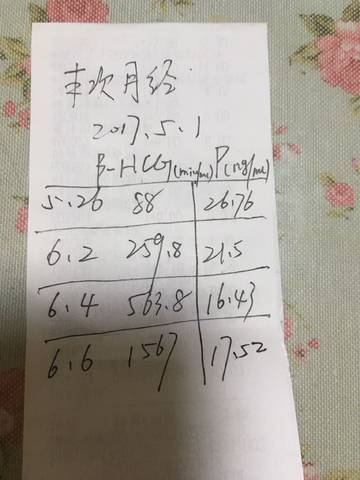 末次月经
2017.5.1
β-HCG(miu/ml) P(ng/ml)
5.26 88 26.76
6.2 259.8 21.5
6.4 563.8 16.43
6.6 1567 17.52